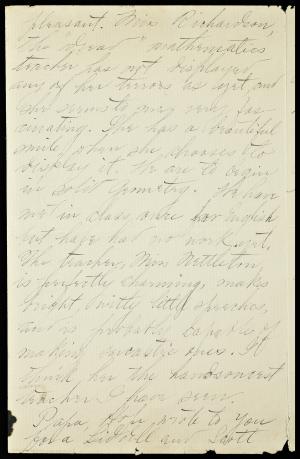 pleasant. Miss Richardson,
the "great" mathematics
teacher has not displayed
any of her terrors as yet, and
she seems to me very fas-
cinating. She has a beautiful
smile when she chooses to
display it. We are to begin
in solid geometry. We have
met in class once for English
but have had no work yet.
The teacher, Miss Nettleton,
is perfectly charming, makes
bright, witty little speeches,
and is probably capable of
making sarcastic ones. I
think her the handsomest
teacher I have seen.
Papa, if you wrote to you
for a Liddell and Scott